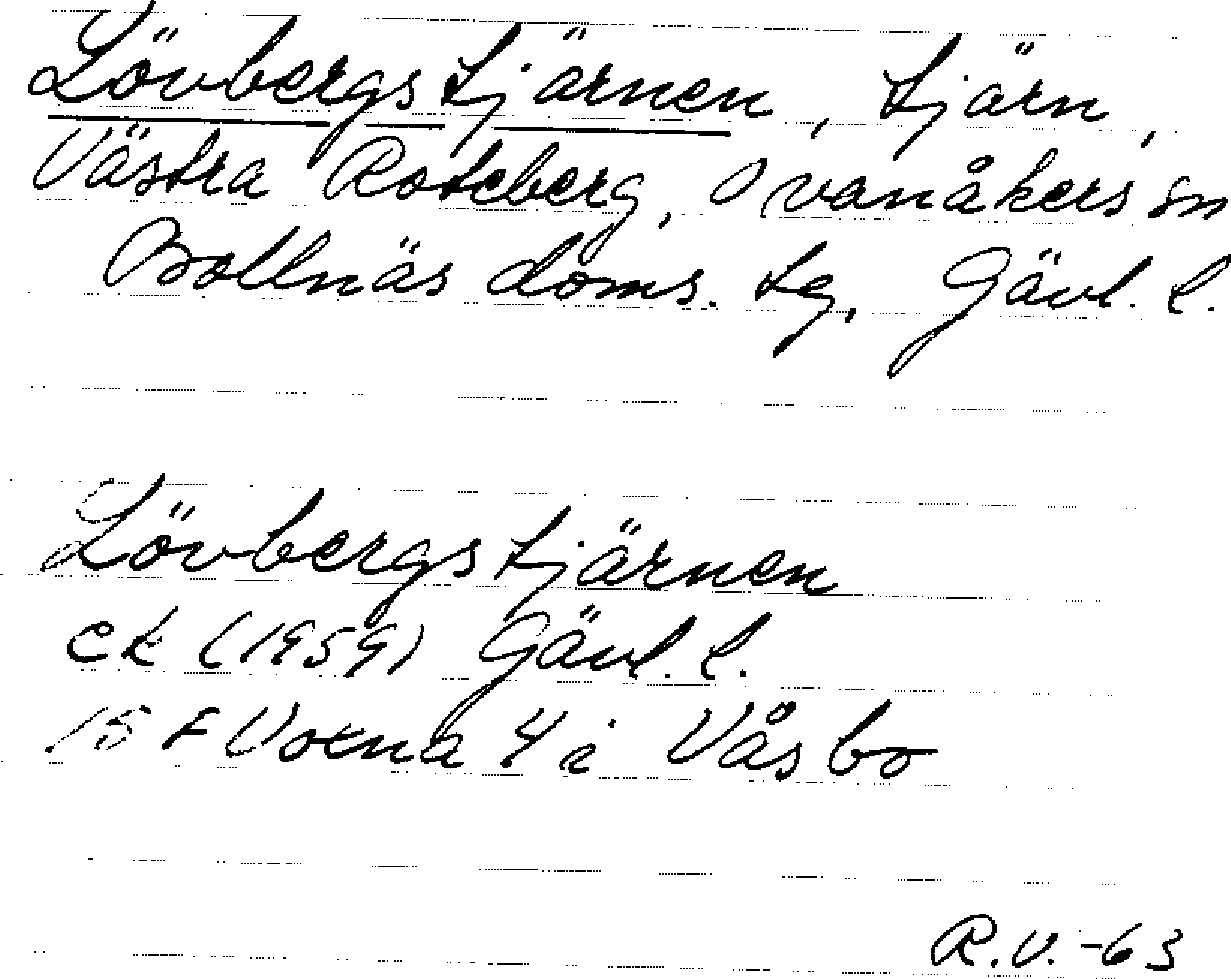 Lövbergstjärnen, tjärn,
Västra Roteberg, Ovanåkers sn
Bollnäs doms. tg, Gävl. l.
Lövbergstjärnen
ek (1959) Gävl. l.
15 F Voxna 4 i Våsbo
R.V.-63